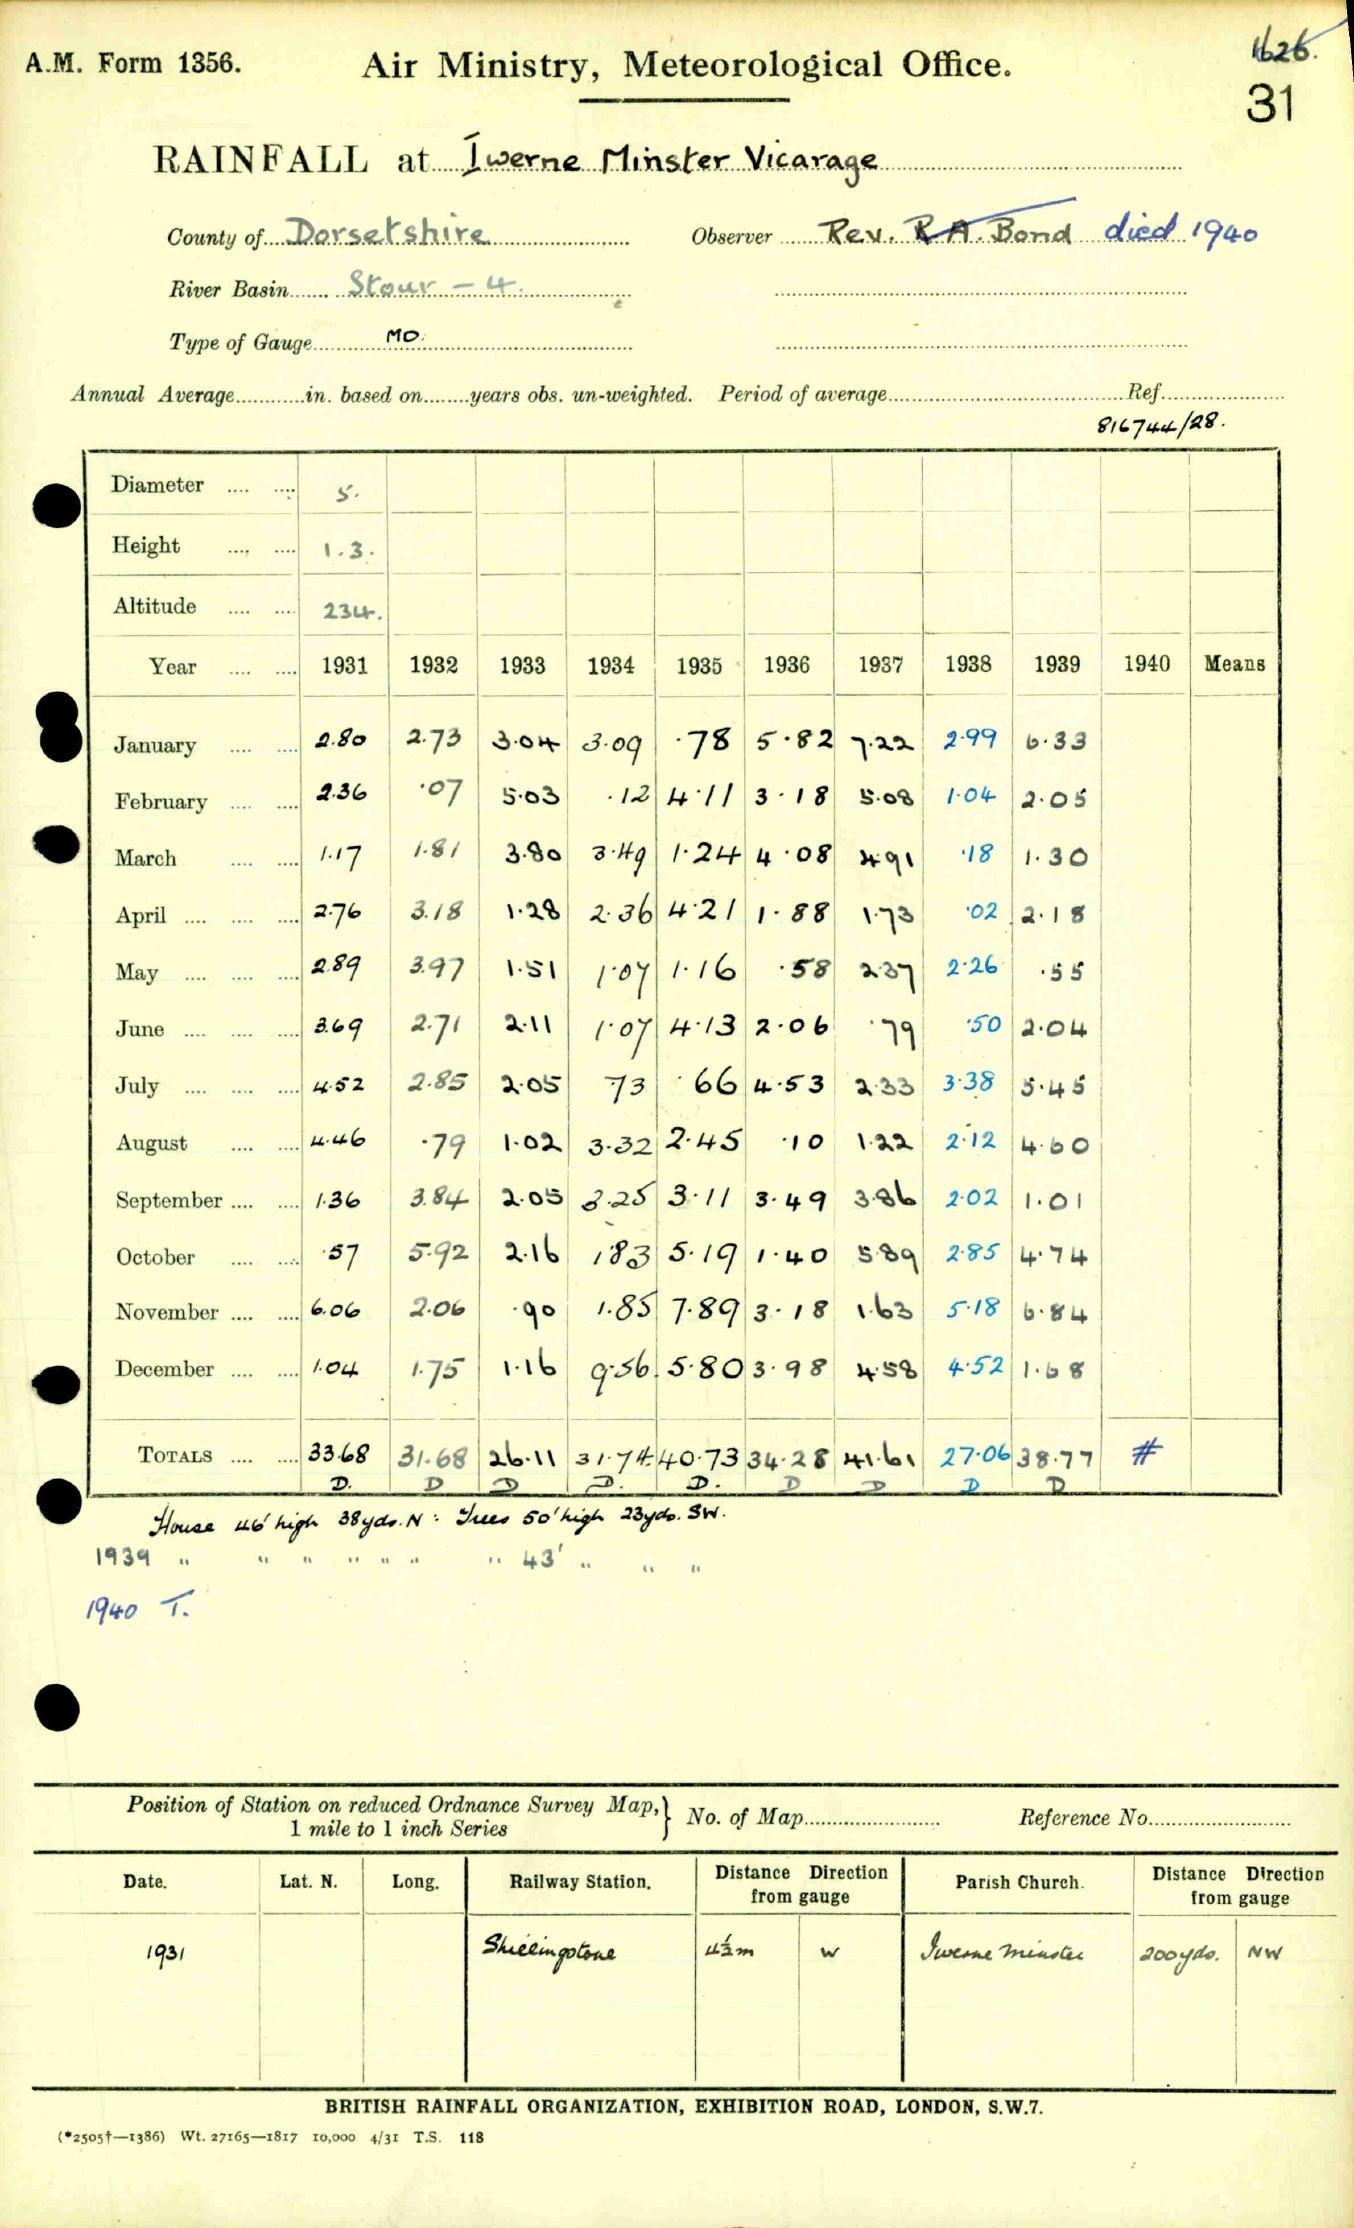 1626.
A.M. Form 1356.
Air Ministry, Meteorological Office.
31
RAINFALL at Iwerne Minster Vicarage
County of Dorsetshire Observer Rev. R A. Bond died 1940
River Basin Stour - 4.
Type of Gauge MO.
Annual Average............in. based on........years obs. un-weighted. Period of average.............................. Ref...............
816744/28.
Diameter .... .... 5.
Height .... .... 1.3.
Altitude .... .... 234.
Year .... .... 1931 1932 1933 1934 1935 1936 1937 1938 1939 1940 Means
January .... .... 2.80 2.73 3.04 3.09 .78 5.82 7.22 2.99 6.33
February .... .... 2.36 .07 5.03 .12 4.11 3.18 5.08 1.04 2.05
March .... .... 1.17 1.81 3.80 3.49 1.24 4.08 4.91 .18 1.30
April .... .... .... 2.76 3.18 1.28 2.36 4.21 1.88 1.73 .02 2.18
May .... .... .... 2.89 3.97 1.51 1.07 1.16 .58 2.37 2.26 .55
June .... .... .... 3.69 2.71 2.11 1.07 4.13 2.06 .79 .50 2.04
July .... .... .... 4.52 2.85 2.05 .73 .66 4.53 2.33 3.38 5.45
August .... .... 4.46 .79 1.02 3.32 2.45 .10 1.22 2.12 4.60
September .... .... 1.36 3.84 2.05 3.25 3.11 3.49 3.86 2.02 1.01
October .... .... .57 5.92 2.16 1.83 5.19 1.40 5.89 2.85 4.74
November .... .... 6.06 2.06 .90 1.85 7.89 3.18 1.63 5.18 6.84
December .... .... 1.04 1.75 1.16 9.56 5.80 3.98 4.58 4.52 1.68
TOTALS .... .... 33.68 31.68 26.11 31.74 40.73 34.28 41.61 27.06 38.77 #
D. D D D. D. D D D D
House 46' high 38yds. N : Trees 50' high 23yds. SW.
1939 " " " " " " " 43' " " "
1940 T.
Position of Station on reduced Ordnance Survey Map, } No. of Map........................ Reference No.........................
1 mile to 1 inch Series
Date. Lat. N. Long. Railway Station. Distance Direction Parish Church. Distance Direction
from gauge from gauge
1931 Shillingstone 4½m W Iwerne Minster 200yds. NW
BRITISH RAINFALL ORGANIZATION, EXHIBITION ROAD, LONDON, S.W.7.
(*2505†—1386) Wt. 27165—1817 10,000 4/31 T.S. 118